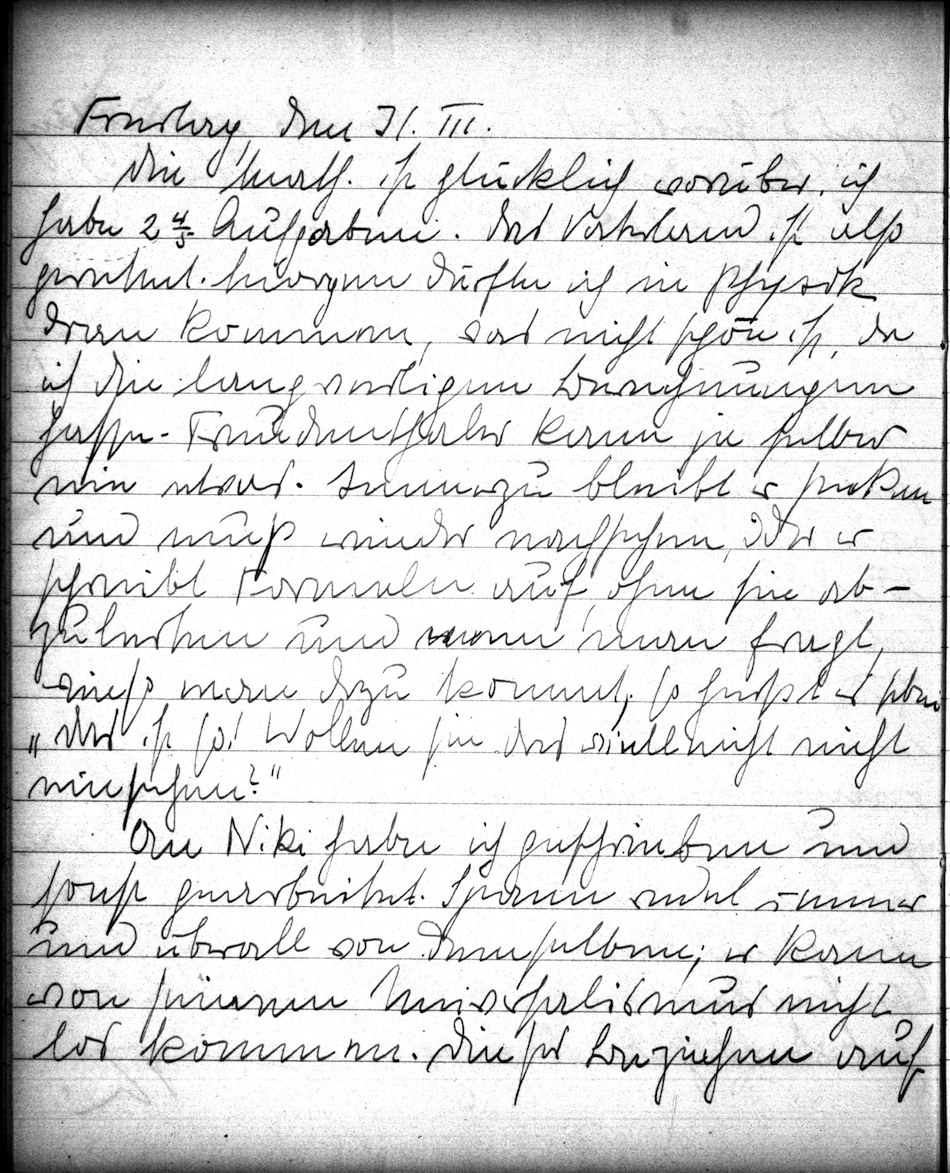 Freitag, den 31. III.
Die Math. ist glücklich vorüber, ich
habe 2 4/5 Aufgaben. Das Vaterland ist also
gerettet. Morgen dürfte ich in Physik
dran kommen, was nicht schön ist, da
ich die langweiligen Berechnungen
hasse. Freudenthaler kann ja selber
nie etwas. Immerzu bleibt er stecken
und muß wieder nachsehen, oder er
schreibt Formeln auf, ohne sie ab-
zuleiten und wenn man fragt,
wieso man dazu kommt, so heißt es eben
„Das ist so! Wollen sie das vielleicht nicht
einsehen?"
An Niki habe ich geschrieben und
sonst gearbeitet. Spann redet immer
und überall von demselben; er kann
von seinem Universalismus nicht
los kommen. Dieses Beziehen auf